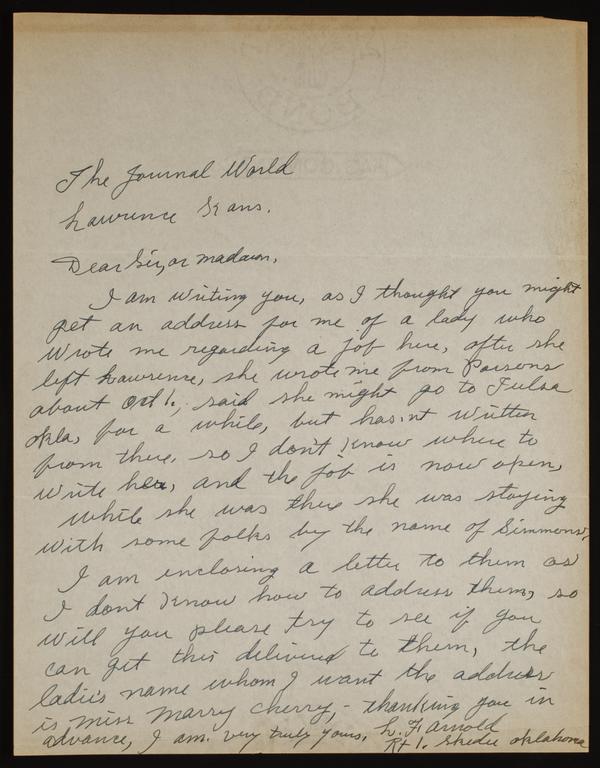 The Journal World
Lawrence Kans.
Dear Sir, or madam,
I am writing you, as I thought you might
get an address for me of a lady who
wrote me regarding a job here, after she
left Lawrence, she wrote me from Parsons
about Oct 1., said she might go to Tulsa
okla, for a while, but has.nt written
from there, so I don't know where to
write her, and the job is now open,
while she was there she was staying
with some folks by the name of Simmons,
I am enclosing a letter to them as
I dont know how to address them, so
will you please try to see if you
can get this delivered to them, the
ladies name whom I want the address
is miss Marry Cherry,- thanking you in
advance, I am. very truly yours, L. F. Arnold
Rt 1. Skedee oklahoma